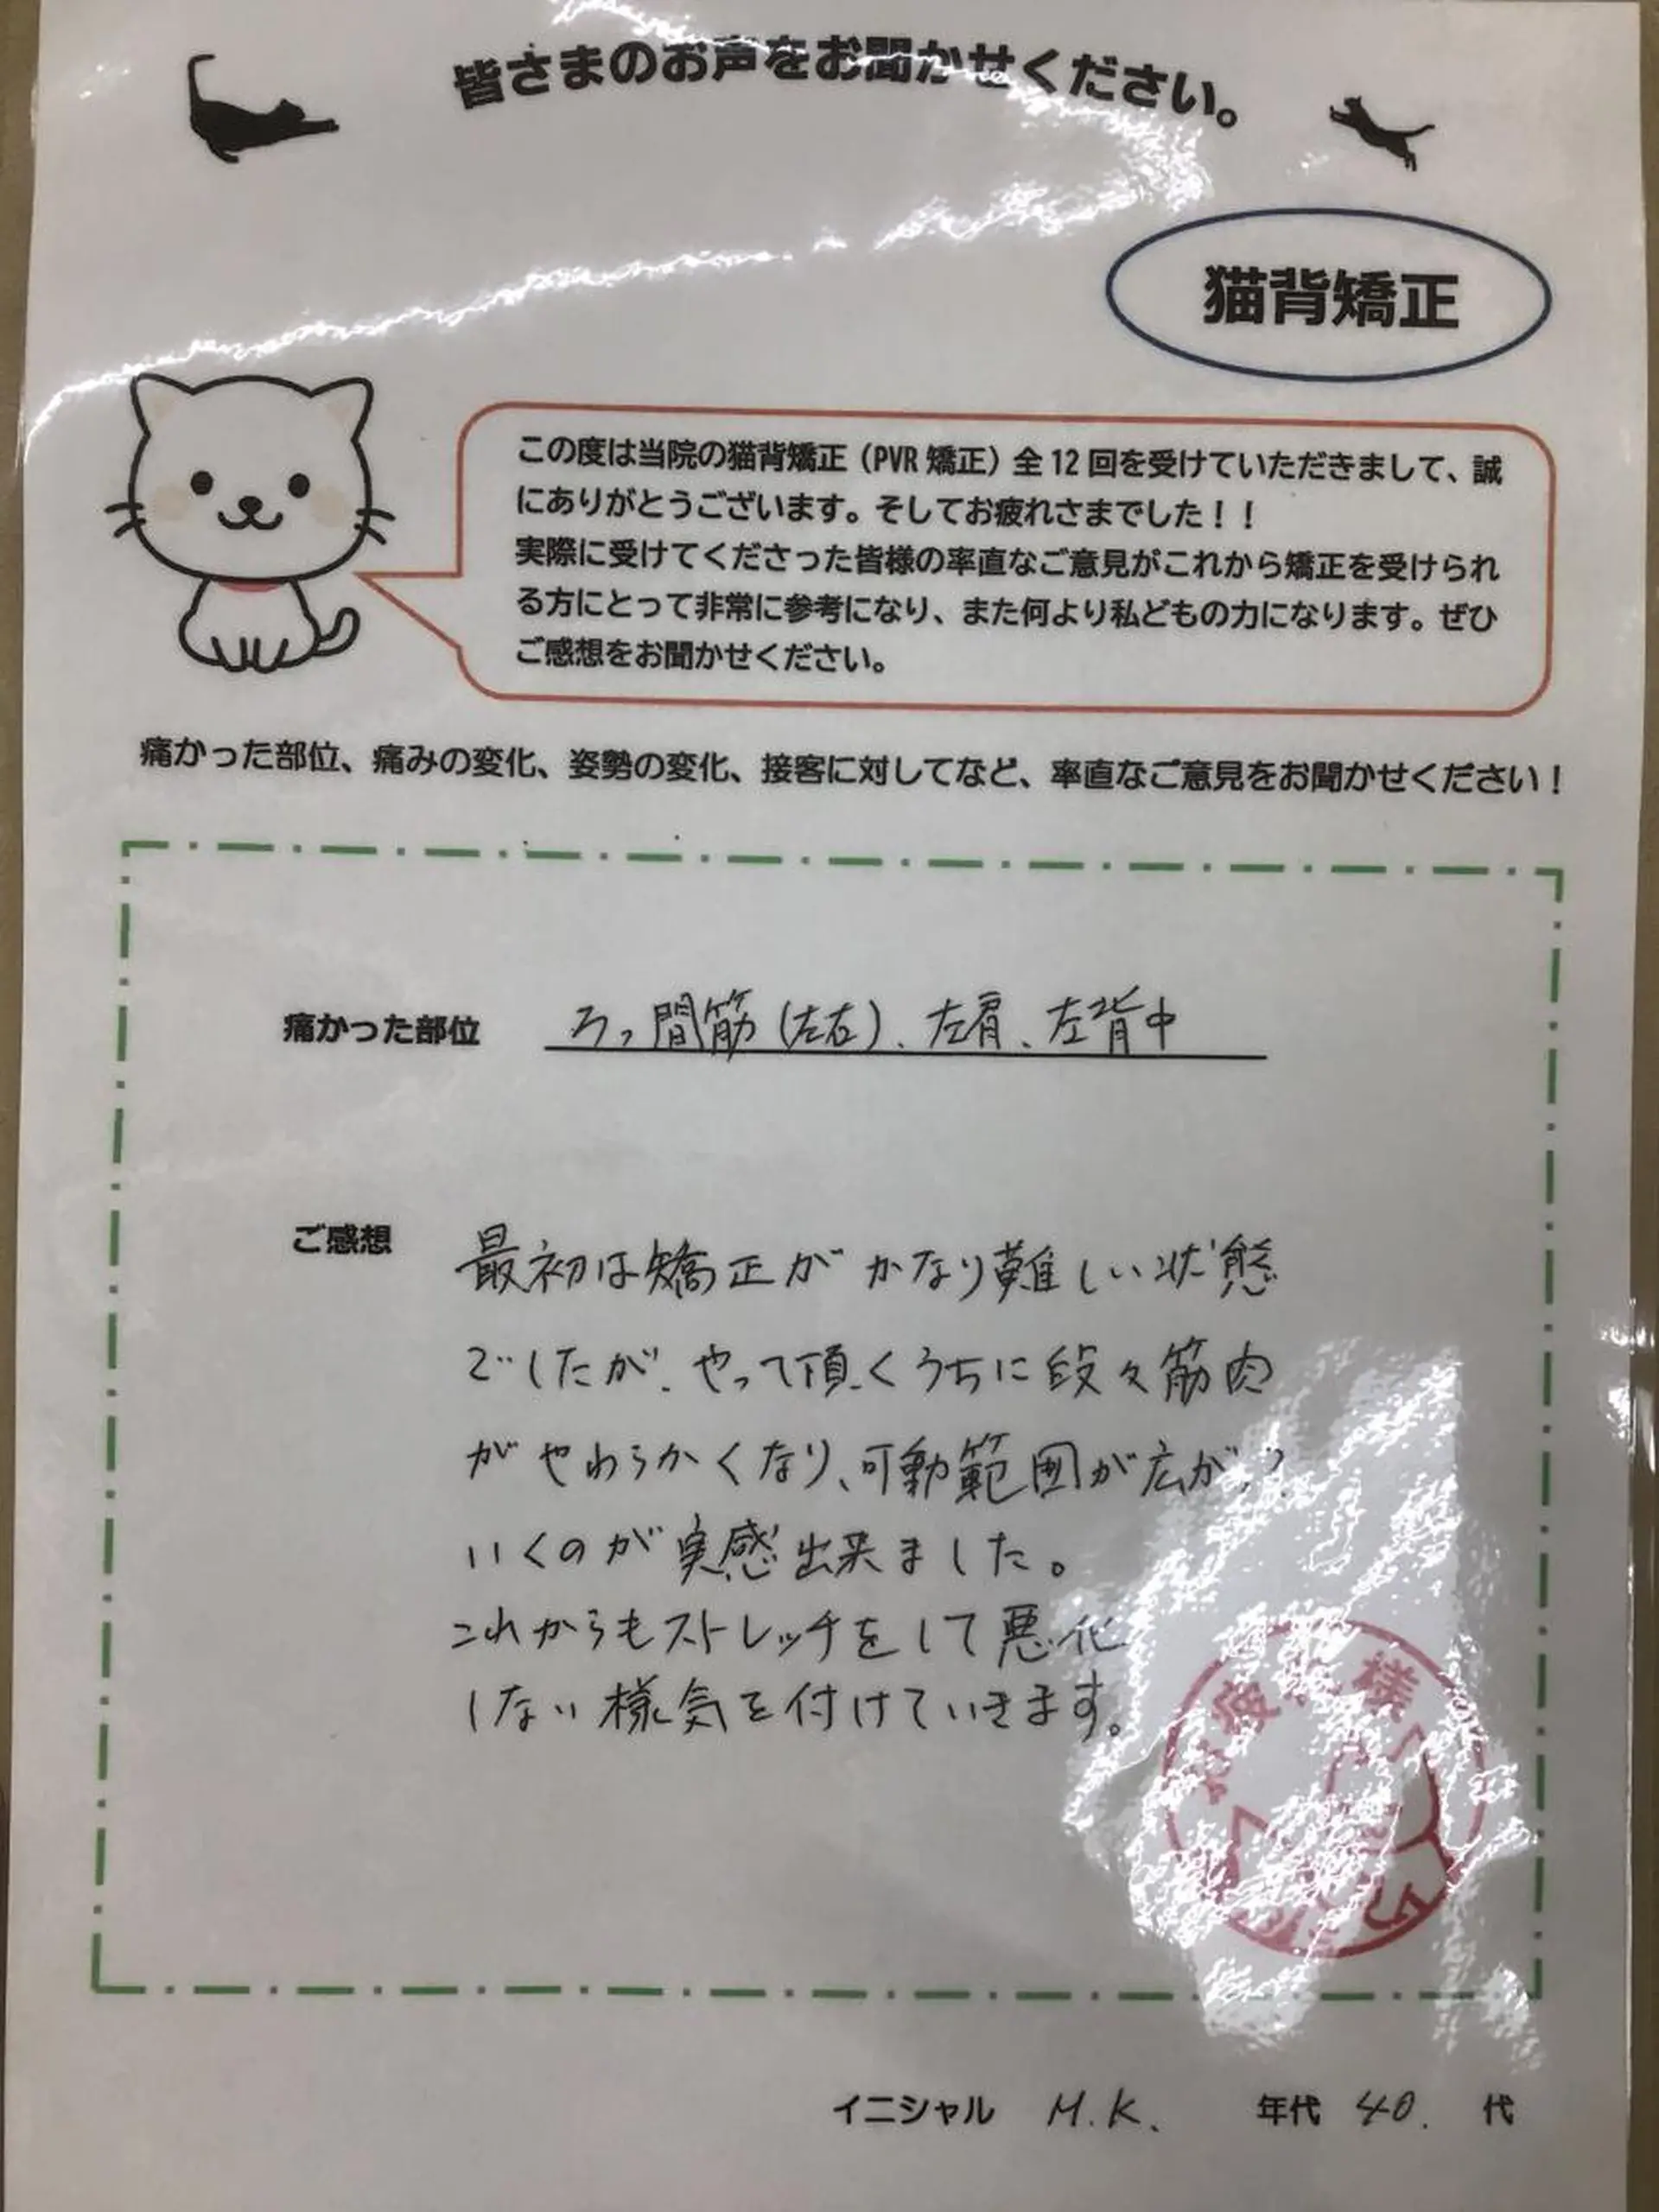 皆さまのお声をお聞かせください。
猫背矯正
この度は当院の猫背矯正（PVR 矯正）全 12 回を受けていただきまして、誠
にありがとうございます。そしてお疲れさまでした！！
実際に受けてくださった皆様の率直なご意見がこれから矯正を受けられ
る方にとって非常に参考になり、また何より私どもの力になります。ぜひ
ご感想をお聞かせください。
痛かった部位、痛みの変化、姿勢の変化、接客に対してなど、率直なご意見をお聞かせください！
痛かった部位 ろっ間筋（左右）、左肩、左背中
ご感想 最初は矯正がかなり難しい状態
でしたが、やって頂くうちに段々筋肉
がやわらかくなり、可動範囲が広がって
いくのが実感出来ました。
これからもストレッチをして悪化
しない様気を付けていきます。
お疲れ様
イニシャル M.K. 年代 40. 代